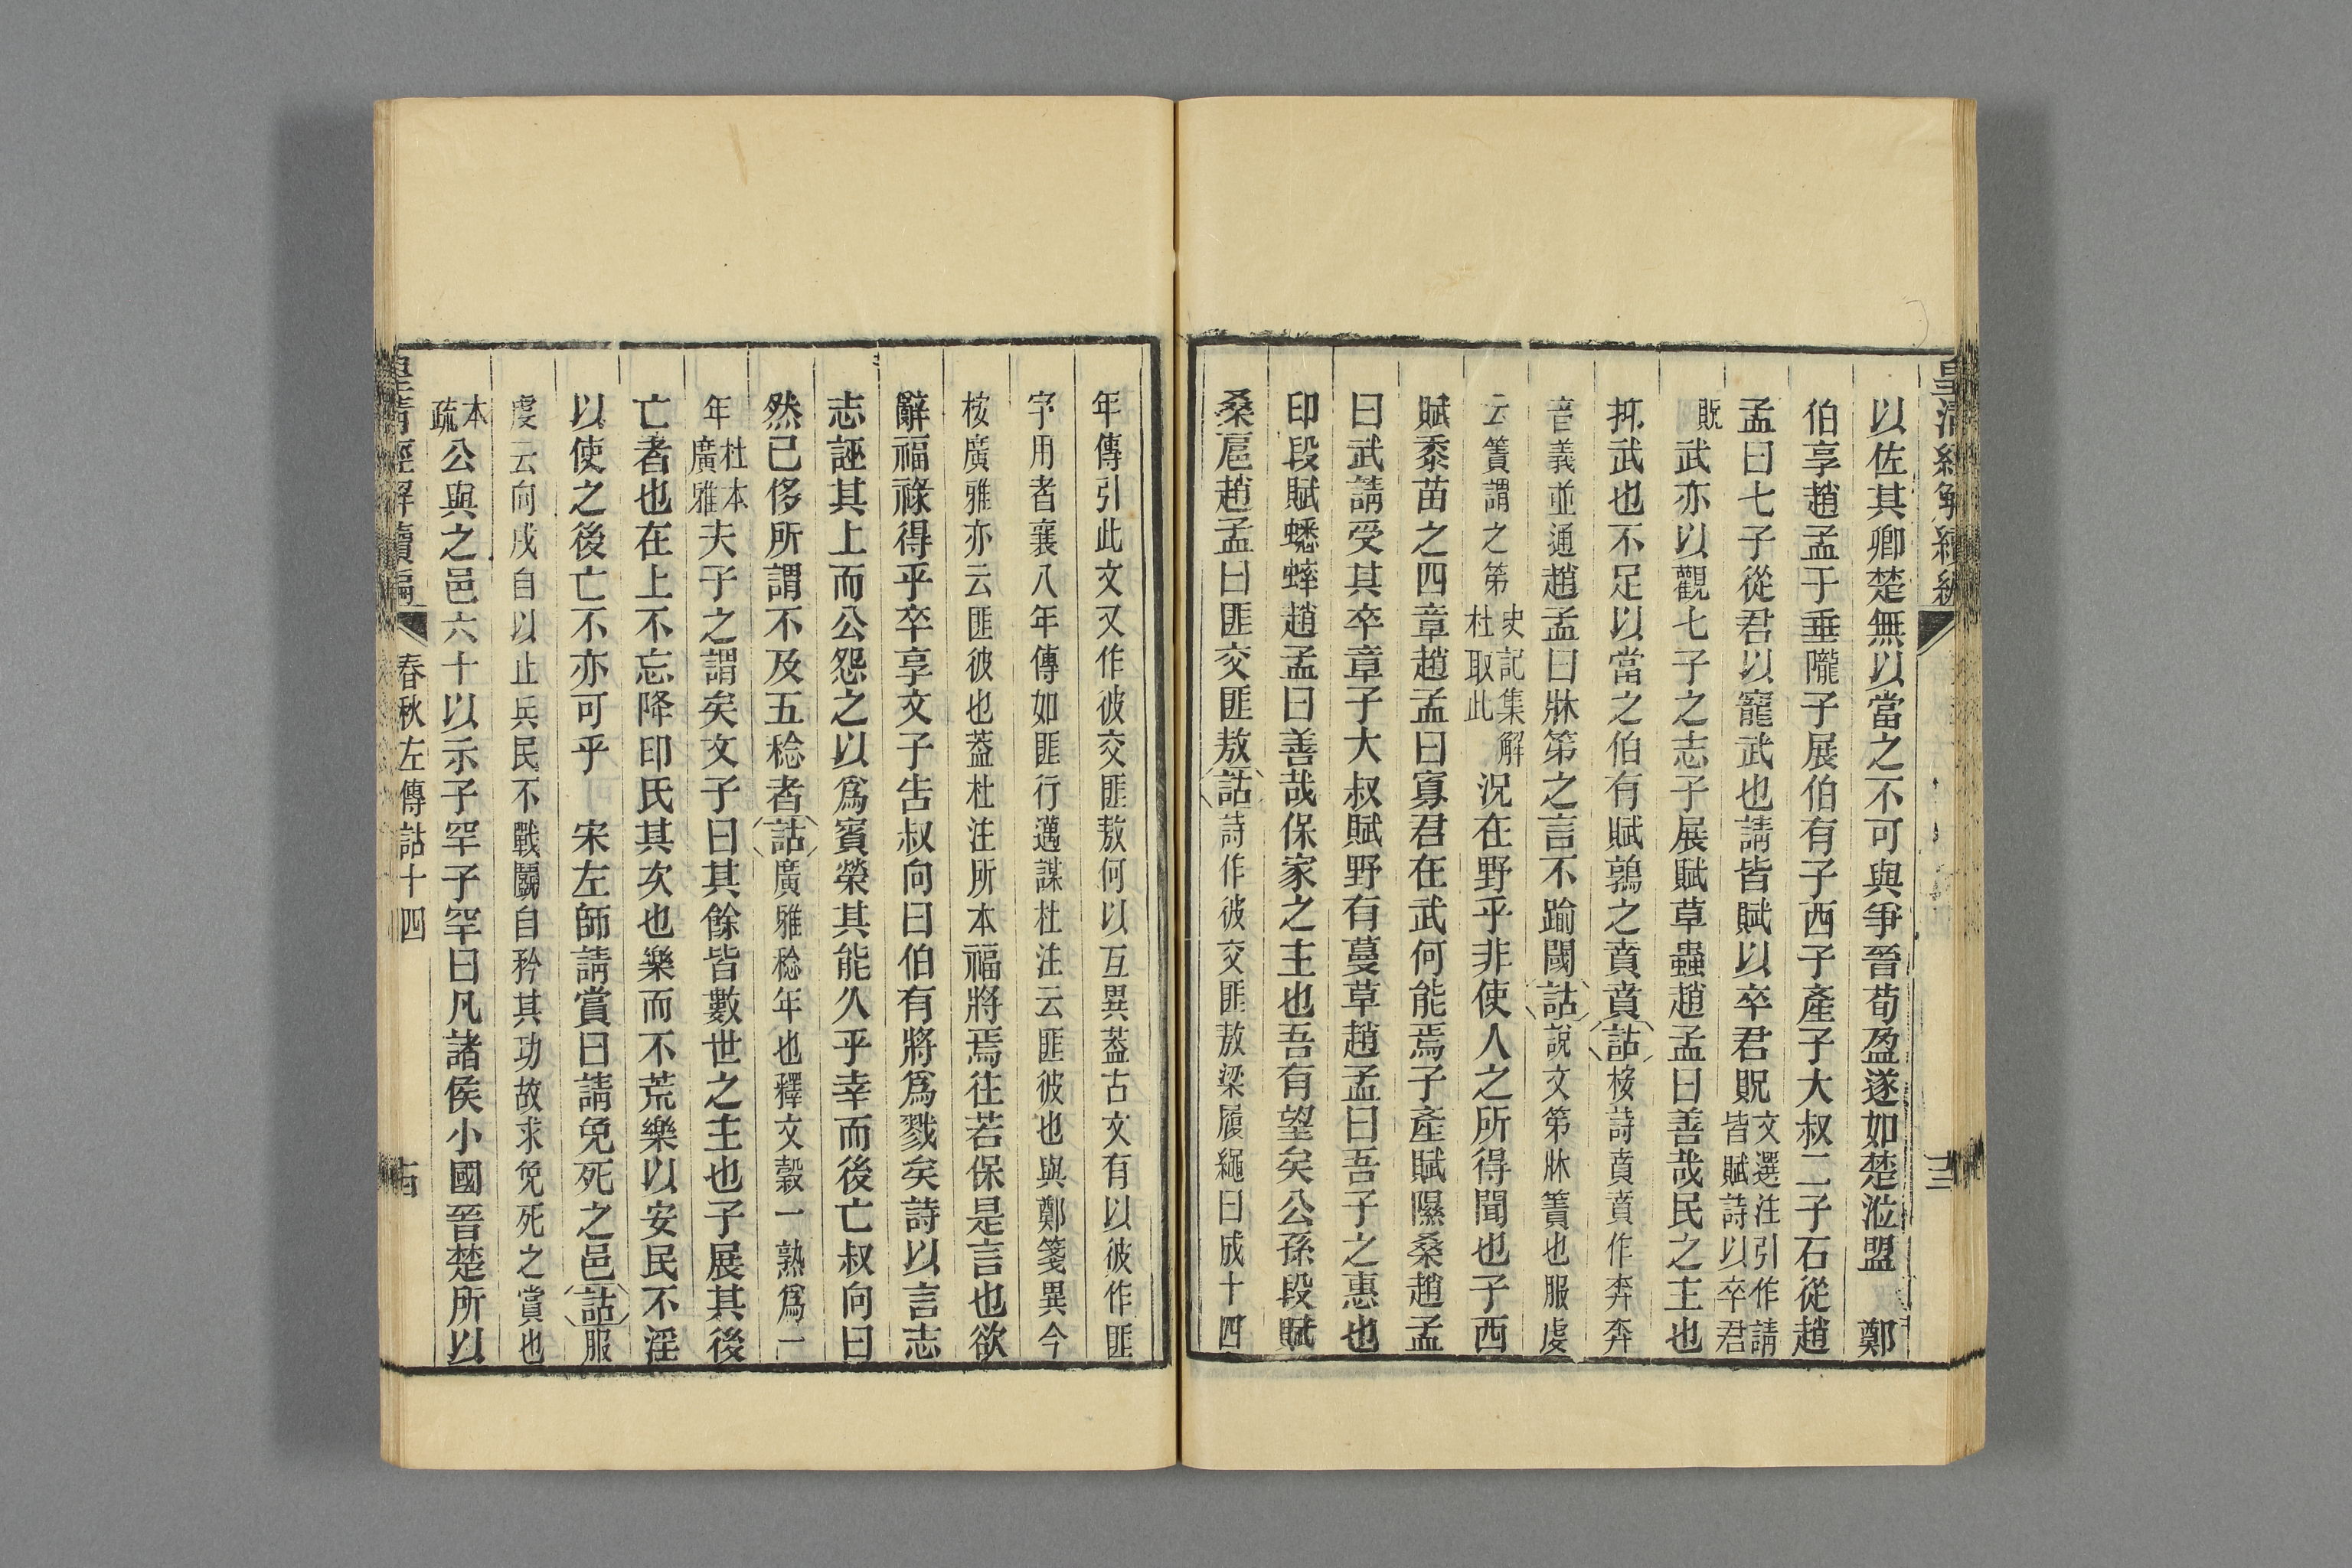 以佐其卿楚無以當之不可與爭晉荀盈遂如楚涖盟　鄭
伯享趙孟于垂隴子展伯有子西子產子大叔二子石從趙
孟曰七子從君以寵武也請皆賦以卒君貺文選注引作請皆賦詩以卒君
貺武亦以觀七子之志子展賦草蟲趙孟曰善哉民之主也
抑武也不足以當之伯有賦鶉之賁賁詁桉詩賁賁作奔奔
音義並通趙孟曰牀笫之言不踰閾詁說文笫牀簀也服虔
云簀謂之笫史記集解杜取此況在野乎非使人之所得聞也子西
賦黍苗之四章趙孟曰寡君在武何能焉子產賦隰桑趙孟
曰武請受其卒章子大叔賦野有蔓草趙孟曰吾子之惠也
印段賦蟋蟀趙孟曰善哉保家之主也吾有望矣公孫段賦
桑扈趙孟曰匪交匪敖詁詩作彼交匪敖梁履繩曰成十四
年傳引此文又作彼交匪敖何以互異葢古文有以彼作匪
字用者襄八年傳如匪行邁謀杜注云匪彼也與鄭箋異今
桉廣雅亦云匪彼也葢杜注所本福將焉往若保是言也欲
辭福祿得乎卒享文子告叔向曰伯有將爲戮矣詩以言志
志誣其上而公怨之以爲賓榮其能久乎幸而後亡叔向曰
然已侈所謂不及五稔者詁廣雅稔年也釋文穀一熟爲一
年杜本廣雅夫子之謂矣文子曰其餘皆數世之主也子展其後
亡者也在上不忘降印氏其次也樂而不荒樂以安民不淫
以使之後亡不亦可乎　宋左師請賞曰請免死之邑詁服
虔云向戌自以止兵民不戰鬭自矜其功故求免死之賞也
本疏公與之邑六十以示子罕子罕曰凡諸侯小國晉楚所以
春秋左傳詁十四